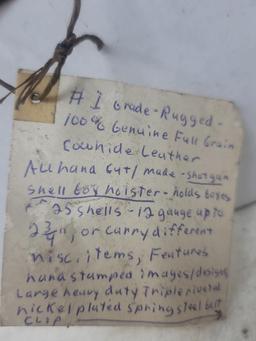 # 1 Grade - Rugged -
100% Genuine Full Grain
Cowhide Leather
All hand cut/made - shotgun
shell box holster - holds boxes
25 shells - 12 gauge up to
2 3/4", or carry different
misc. items, Features
hand stamped images/designs
Large heavy duty Triple riveted
nickel plated spring steel belt
CLIP.